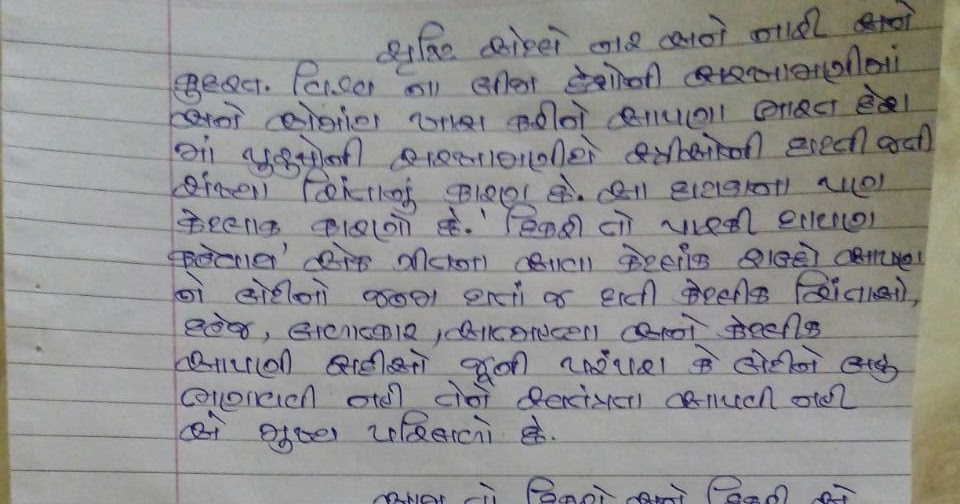 સૃષ્ટિ એટલે નર અને નારી અને
કુદરત. વિશ્વ ના બીજા દેશોની સરખામણીમાં
અને એમાંય ખાસ કરીને આપણા ભારત દેશ
માં પુરુષોની સરખામણીએ સ્ત્રીઓની ઘટતી જતી
સંખ્યા ચિંતાનું કારણ છે. આ ઘટાડાના પણ
કેટલાક કારણો છે. 'દિકરી તો પારકી થાપણ
કહેવાય' એક ગીતના આવા કેટલાંક શબ્દો આપણ
ને બેટીનો જન્મ થતાં જ થતી કેટલીક ચિંતાઓ,
દહેજ, બળાત્કાર, આત્મહત્યા અને કેટલીક
આપણી સદીઓ જૂની પરંપરા કે બેટીને બહુ
ભણાવવી નહી તેને સ્વતંત્રતા આપવી નહી
એ મુખ્ય પરિબળો છે.
તો દિકરો અને દિકરી